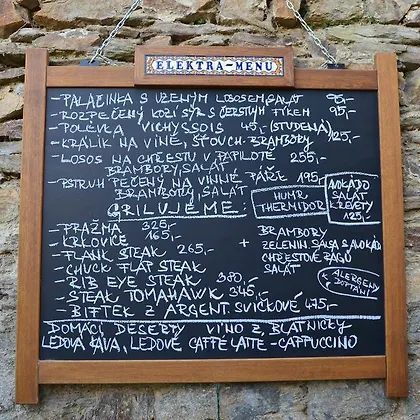 ELEKTRA-MENU
-PALAČINKA S UZENÝM LOSOSEM, SALÁT 95,-
-ROZPEČENÝ KOZÍ SÝR S ČERSTVÝM FÍKEM 95,-
-POLÉVKA VICHYSSOIS 45,- (STUDENÁ)
-KRÁLÍK NA VÍNĚ, ŠŤOUCH. BRAMBORY 125,-
-LOSOS NA CHŘESTU V PAPILOTĚ 255,-
BRAMBORY, SALÁT
-PSTRUH PEČENÝ NA VINNÉ PÁŘE 195,-
BRAMBORY, SALÁT
HUMR THERMIDOR
AVOKÁDO
SALÁT
KREVETY
125,-
GRILUJEME:
-PRAŽMA 325,-
-KRKOVICE 165,-
-FLANK STEAK 265,-
-CHUCK FLAP STEAK
-RIB EYE STEAK 380,-
-STEAK TOMAHAWK 345,-
-BIFTEK Z ARGENT. SVÍČKOVÉ 475,-
+ BRAMBORY
ZELENIN. SALSA S AVOKÁD
CHŘESTOVÉ RAGÚ
SALÁT
ALERGENY
DOPTÁNÍ
DOMÁCÍ DESERTY VÍNO Z BLATNIČKY
LEDOVÁ KÁVA, LEDOVÉ CAFFÉ LATTE - CAPPUCCINO